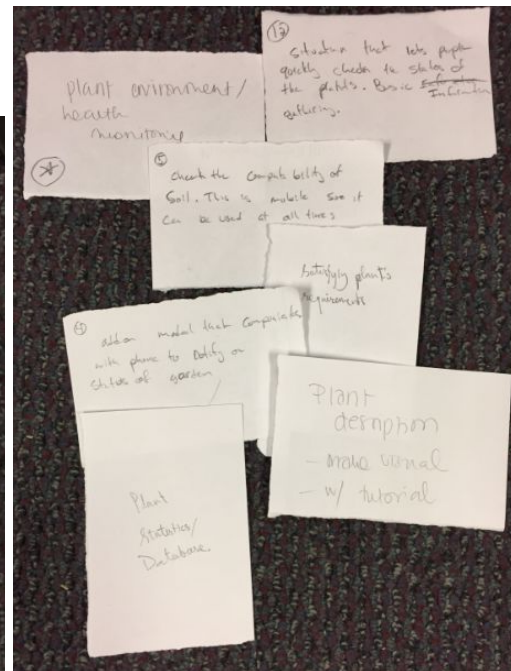 plant environment/
health
monitoring
*
12
Situation that lets people
quickly check the status of
the plants. Basic
Information
gathering.
5
check the compatability of
Soil. This is mobile soe it
Can be used at all times
Satisfyly plant's
requirements
add on modul that
with phone to Notify on
Status of garden
Plant
desription
- more visual
- w/ tutorial
Plant
Statistics/
Database.